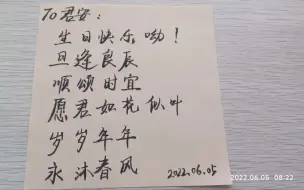 To君安：
生日快乐呦！
旦逢良辰
顺颂时宜
愿君如花似叶
岁岁年年
永沐春风
2022.06.05
2022.06.05 08:22